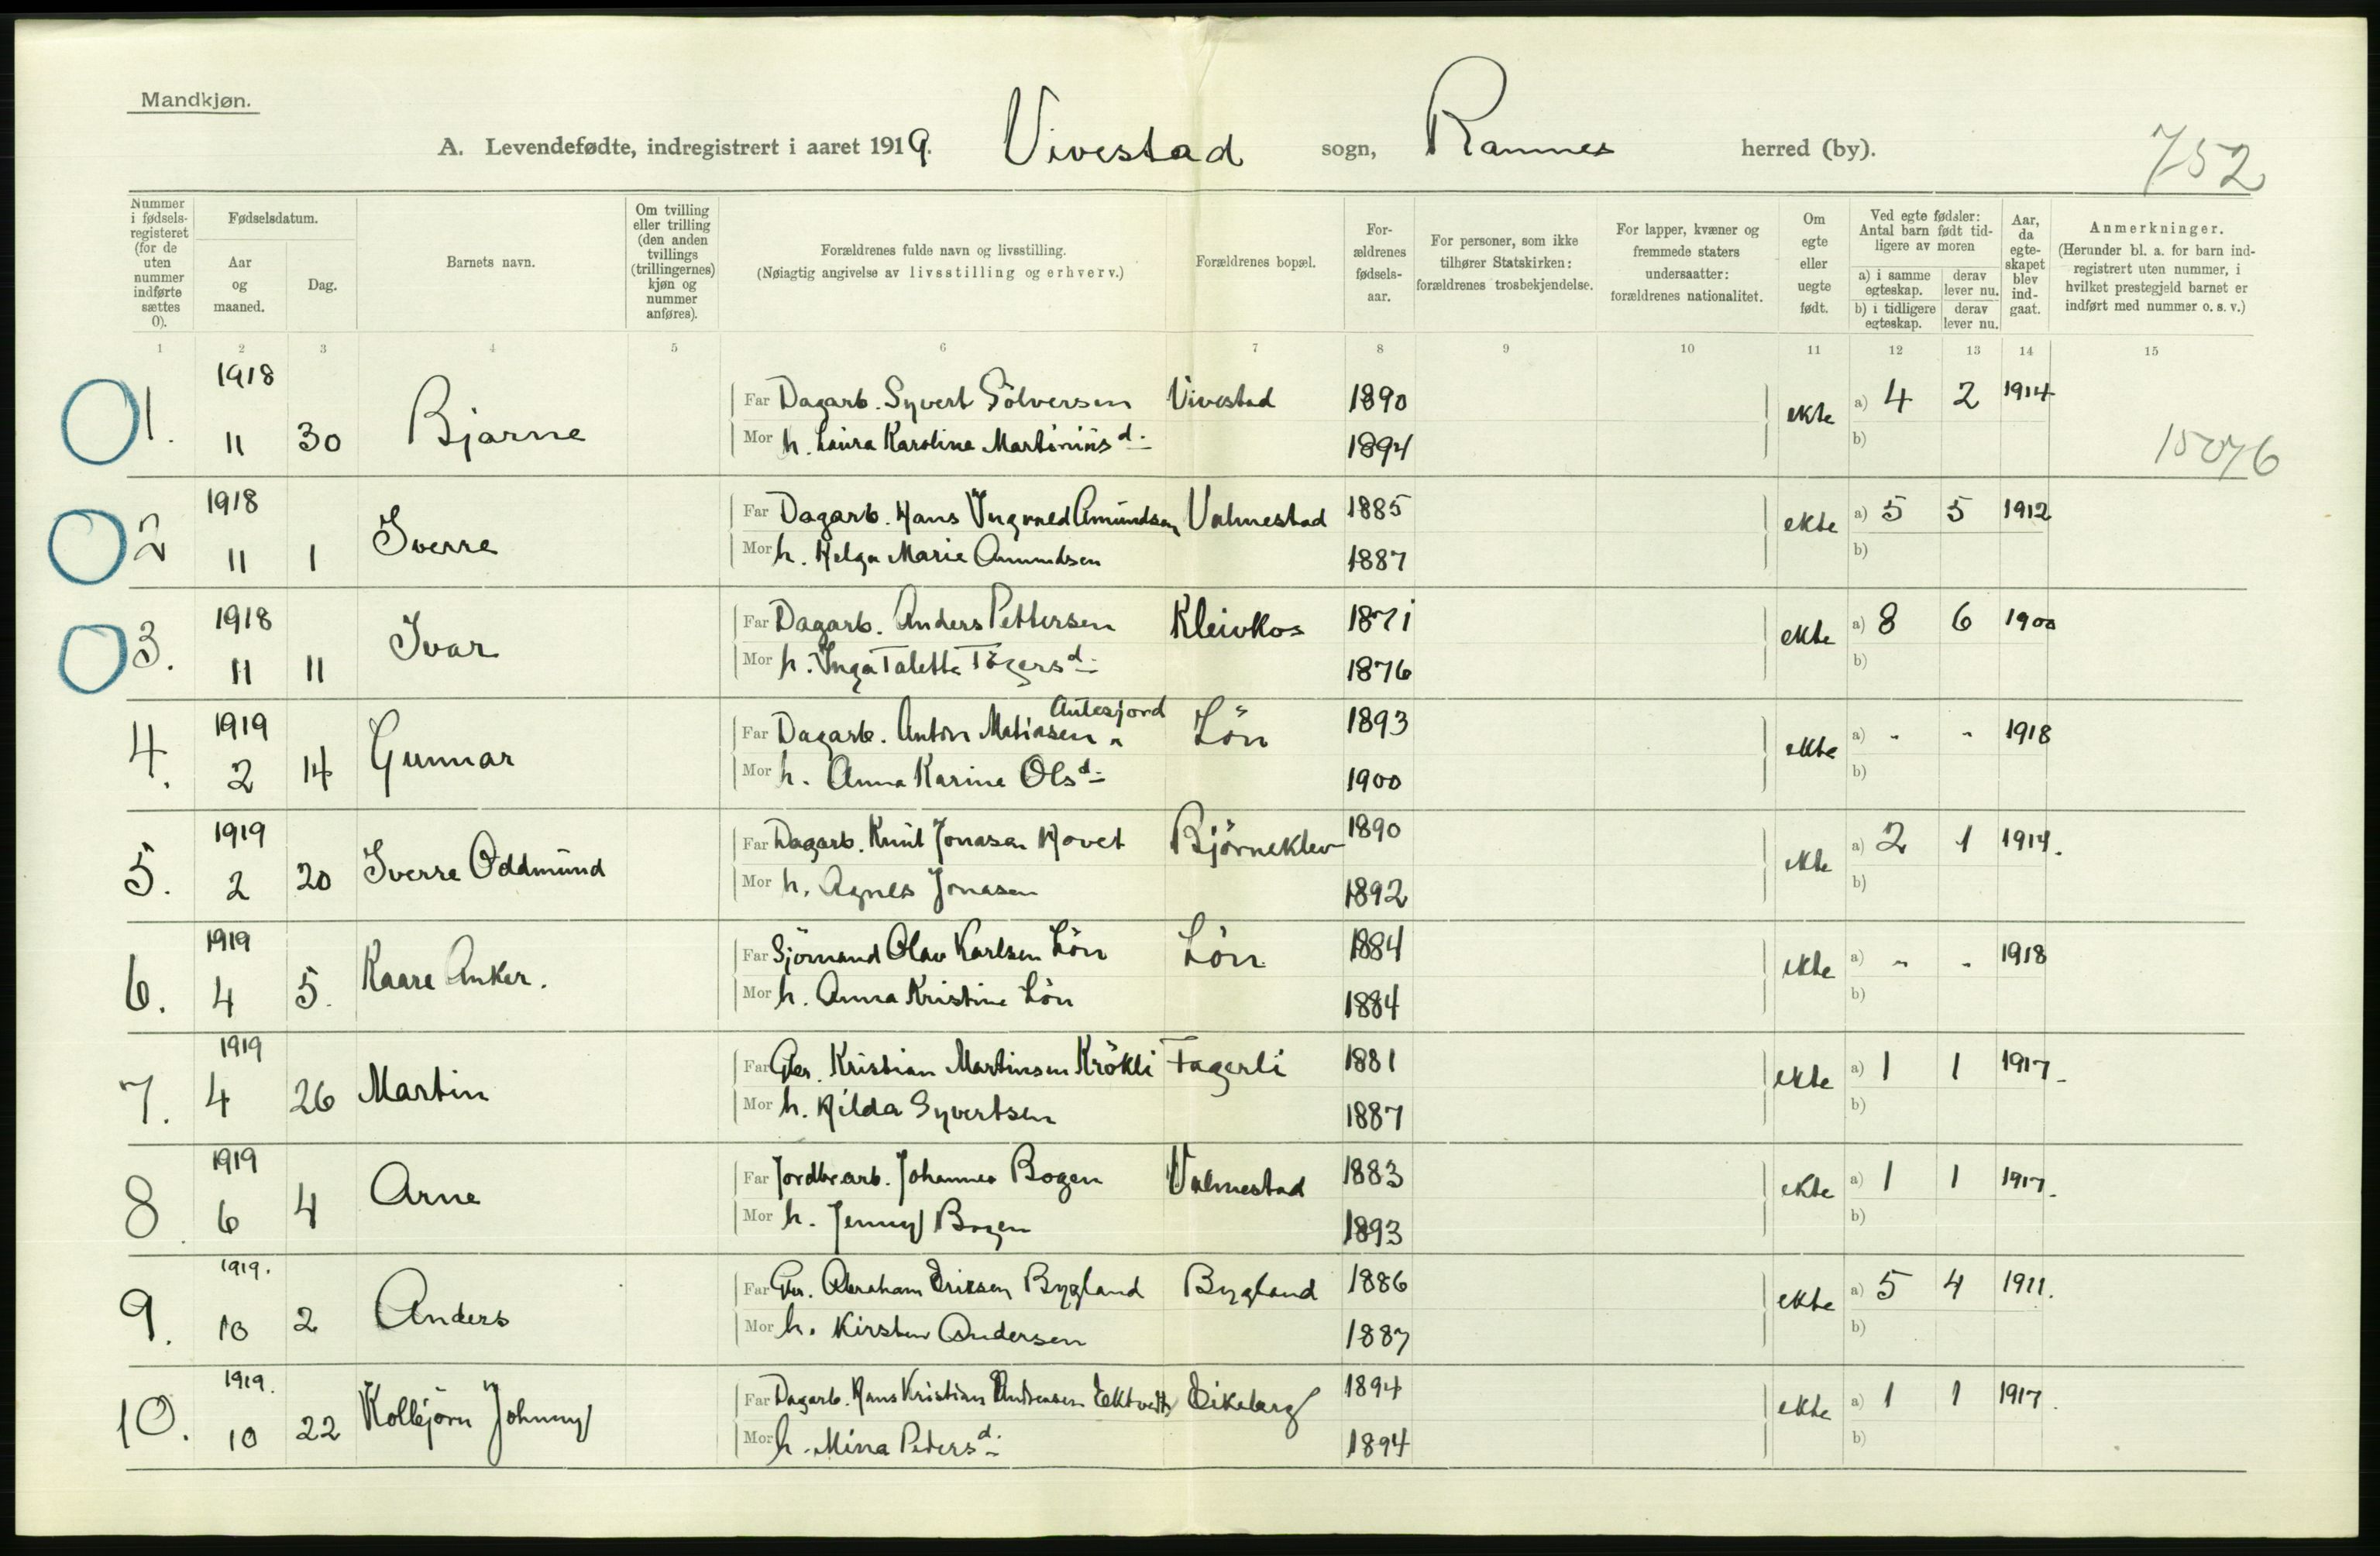 Mandkjøn.
A. Levendefødte, indregistrert i aaret 1919. Vivestad sogn, Ramnes herred (by).
752
Nummer i fødsels-registeret (for de uten nummer indførte sættes 0).
Fødselsdatum.
Aar og maaned.
Dag.
Barnets navn.
Om tvilling eller trilling (den anden tvillings (trillingernes) kjøn og nummer anføres).
Forældrenes fulde navn og livsstilling.
(Nøiagtig angivelse av livsstilling og erhverv.)
Forældrenes bopæl.
For-ældrenes fødsels-aar.
For personer, som ikke tilhører Statskirken: forældrenes trosbekjendelse.
For lapper, kvæner og fremmede staters undersaatter: forældrenes nationalitet.
Om egte eller uegte født.
Ved egte fødsler: Antal barn født tid-ligere av moren
a) i samme egteskap. derav lever nu.
b) i tidligere egteskap. derav lever nu.
Aar, da egte-skapet blev ind-gaat.
Anmerkninger.
(Herunder bl. a. for barn ind-registrert uten nummer, i hvilket prestegjeld barnet er indført med nummer o. s. v.)
1 2 3 4 5 6 7 8 9 10 11 12 13 14 15
1. 1918 11 30 Bjarne Far Dagarb. Syvert Sölversen Vivestad 1890 ekte a) 4 2 1914
Mor h. Laura Karoline Martinius d: 1894 b)
15076
2 1918 11 1 Sverre Far Dagarb. Hans Ingvald Amundsen Valmestad 1885 ekte a) 5 5 1912
Mor h. Helga Marie Amundsen 1887 b)
3. 1918 11 11 Ivar Far Dagarb. Anders Pettersen Kleivkos 1871 ekte a) 8 6 1900
Mor h. Inga Talette Tögers d: 1876 b)
4. 1919 2 14 Gunnar Far Dagarb. Anton Matiasen Aulesjord Lön 1893 ekte a) " " 1918
Mor h. Anna Karine Ols d: 1900 b)
5. 1919 2 20 Sverre Oddmund Far Dagarb. Knut Jonasen Hovet Björneklev 1890 ekte a) 2 1 1914.
Mor h. Agnes Jonasen 1892 b)
6. 1919 4 5. Kaare Anker. Far Sjömand Olav Karlsen Lön Lön 1884 ekte a) " " 1918
Mor h. Anna Kristine Lön 1884 b)
7. 1919 4 26 Martin Far Gbr. Kristian Martinsen Krökli Fagerli 1881 ekte a) 1 1 1917.
Mor h. Hilda Syvertsen 1887 b)
8. 1919 6 4 Arne Far Jordbrarb. Johannes Bogen Valmestad 1883 ekte a) 1 1 1917.
Mor h. Jenny Bogen 1893 b)
9. 1919. 10 2 Anders Far Gbr. Abraham Eriksen Bygland Bygland 1886 ekte a) 5 4 1911.
Mor h. Kirsten Andersen 1887 b)
10. 1919. 10 22 Kolbjörn Johnny Far Dagarb. Hans Kristian Andreasen Ektvedt Eikeberg 1894 ekte a) 1 1 1917.
Mor h. Mina Peders d: 1894 b)